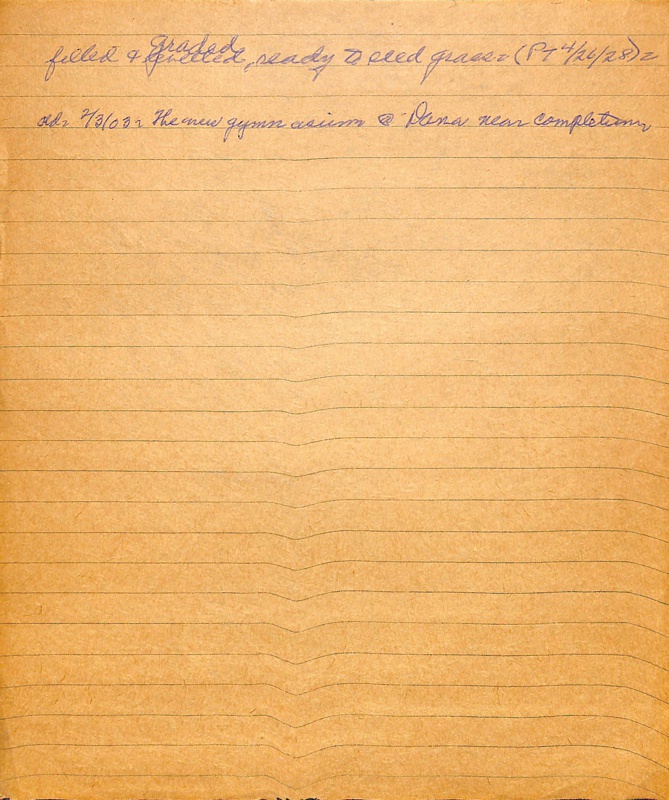 graded
filled & , ready to seed grass = (PT 4/26/28) =
old = 2/3/03 = The new gymnasium @ Dana near completion